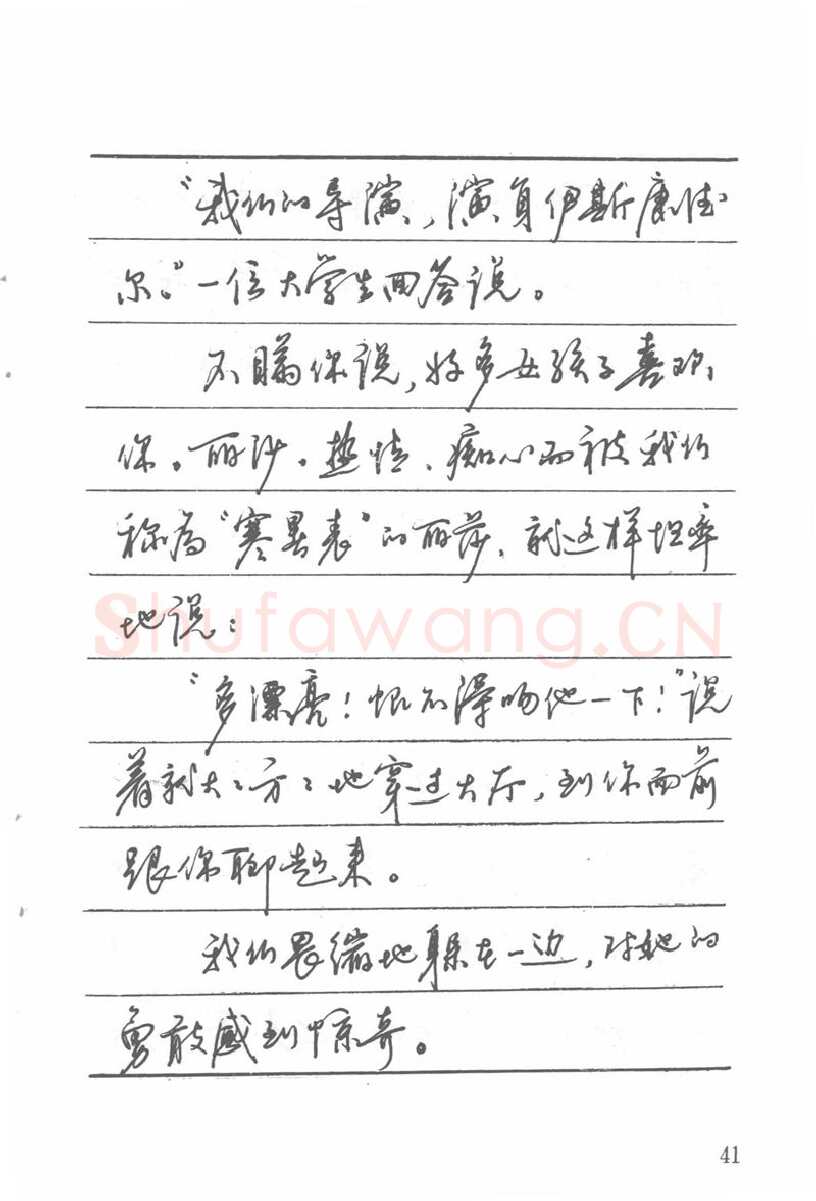 “我们的导演、演员伊斯康德
尔。”一位大学生回答说。
不瞒你说，好多女孩子喜欢
你。丽莎。热情、痴心而被我们
称为“寒暑表”的丽莎，就这样坦率
地说：
“多漂亮！恨不得吻他一下！”说
着就大大方方地穿过大厅，到你面前
跟你聊起来。
我们畏缩地躲在一边，对她的
勇敢感到惊奇。
Shufawang.CN
41